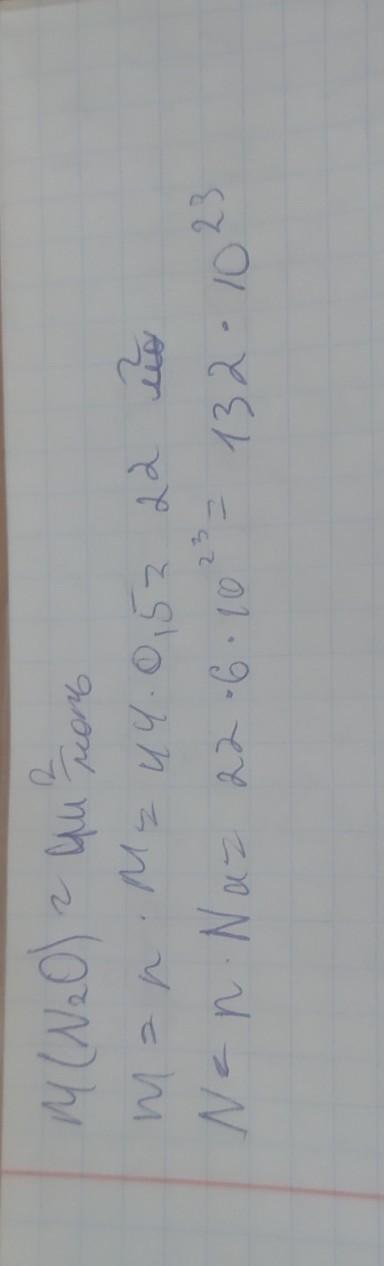 M(N₂O) = 44 г/моль
m = n · M = 44 · 0,5 = 22 г
N = n · Na = 22 · 6 · 10²³ = 132 · 10²³